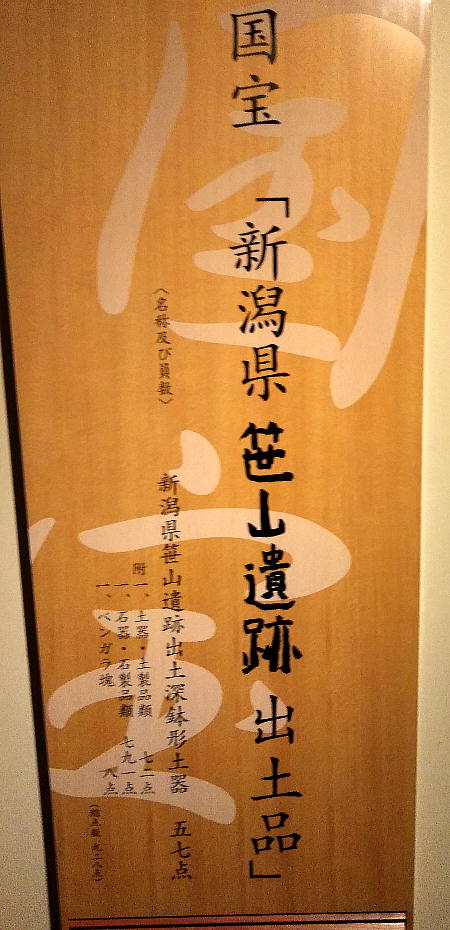 国宝 「新潟県 笹山遺跡 出土品」
〈名称及び員数〉
新潟県笹山遺跡出土深鉢形土器 五七点
附一、土器・土製品類 七二点
一、石器・石製品類 七九一点
一、ベンガラ塊 八点
(総点数 九二八点)
国宝